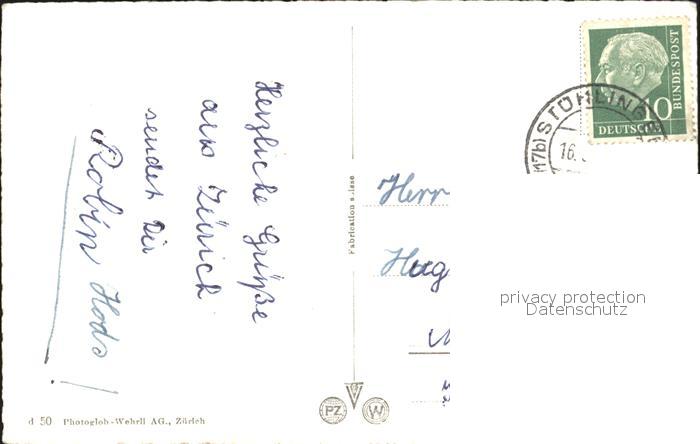 Herzliche Grüße
aus Zürich
sendet Dir
Robin Hods!
Fabrication suisse
Herr
Hug
BUNDESPOST
10
DEUTSCHE
(17b) STÜHLINGE
16.
privacy protection
Datenschutz
PZ
W
d 50 Photoglob-Wehrli AG., Zürich